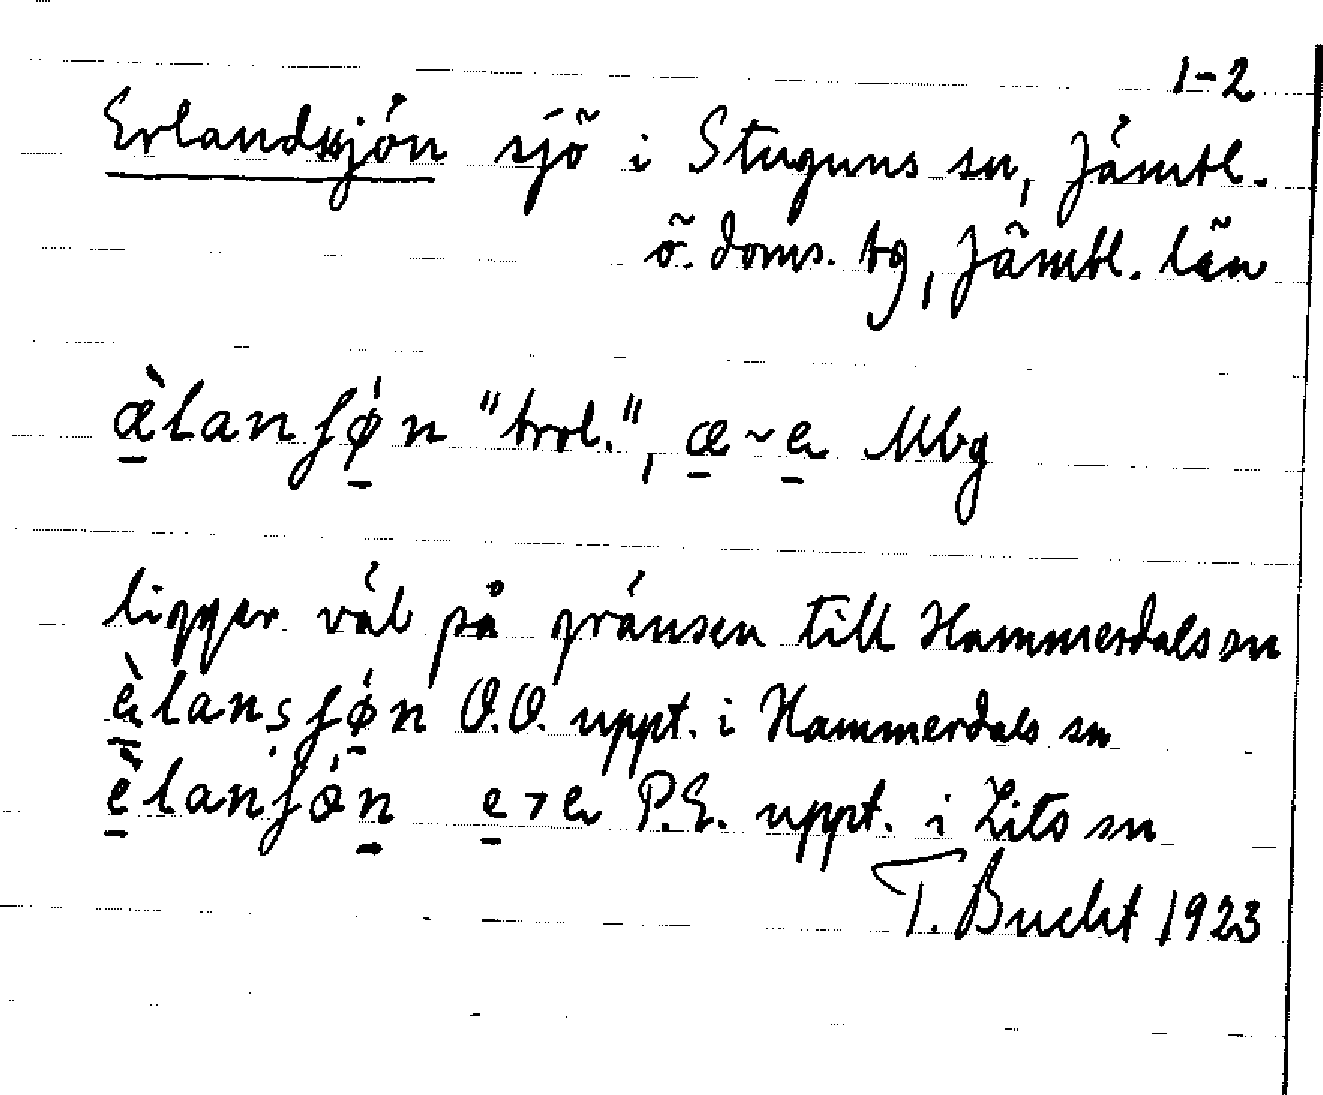 1-2
Erlandssjön sjö i Stuguns sn, Jämtl.
ö. doms. tg, Jämtl. län
æ̀lanʃø̍n "trol.", æ ~ e Mbg
ligger väl på gränsen till Hammerdals sn
èlansʃøn O.O. uppt. i Hammerdals sn
èlanʃön e > e P.E. uppt. i Lits sn
T. Bucht 1923